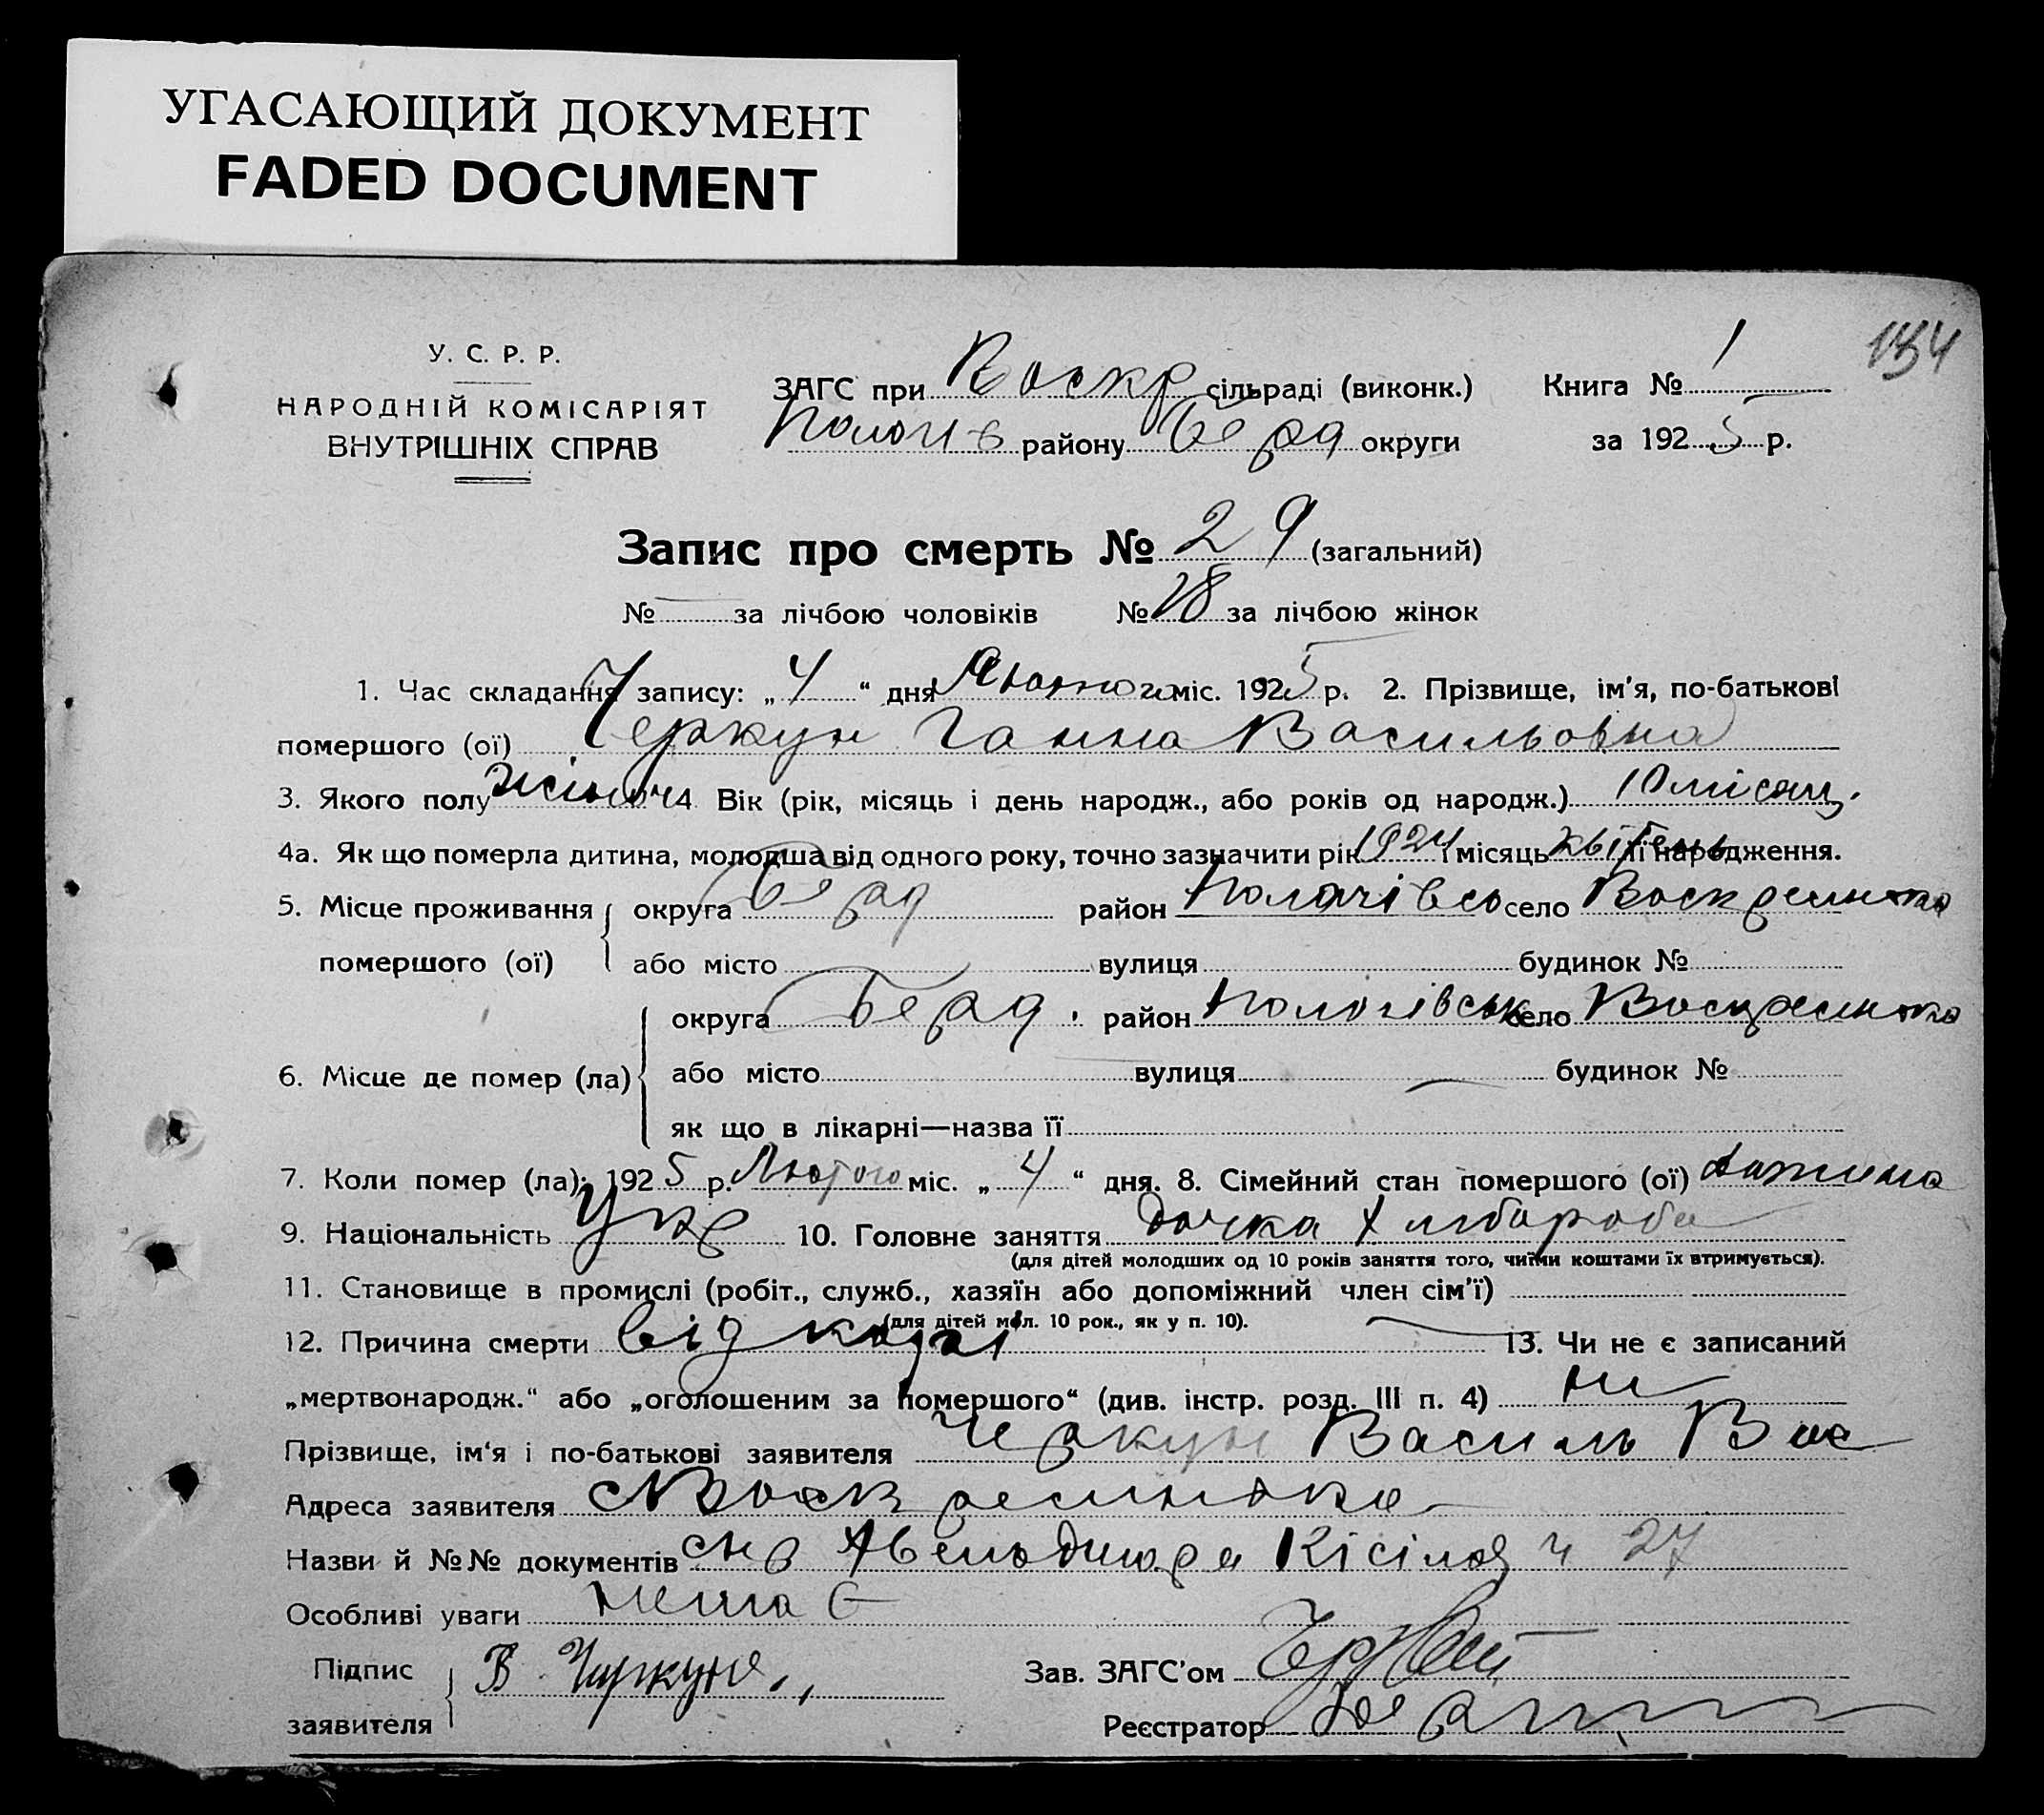 УГАСАЮЩИЙ ДОКУМЕНТ
FADED DOCUMENT
134
У. С. Р. Р.
НАРОДНІЙ КОМІСАРІЯТ
ВНУТРІШНІХ СПРАВ
ЗАГС при Воскр сільраді (виконк.) Книга № 1
Пологів району Берд округи за 1925 р.
Запис про смерть № 29 (загальний)
№ — за лічбою чоловіків № 28 за лічбою жінок
1. Час складання запису: „4“ дня Лютого міс. 1925 р. 2. Прізвище, ім'я, по-батькові
помершого (ої) Черкун Ганна Васильовна
3. Якого полу жіноч 4 Вік (рік, місяць і день народж., або років од народж.) 10 місяц.
4а. Як що померла дитина, молодша від одного року, точно зазначити рік 1924 і місяць квітень її народження.
5. Місце проживання помершого (ої) округа Берд район Пологівсь село Воскресенка
або місто вулиця будинок №
6. Місце де помер (ла) округа Берд. район Пологівськ село Воскресенка
або місто вулиця — будинок №
як що в лікарні—назва її
7. Коли помер (ла): 1925 р. Лютого міс. „4“ дня. 8. Сімейний стан помершого (ої) дитина
9. Національність Укр 10. Головне заняття дочка хлібороба
(для дітей молодших од 10 років заняття того, чиїми коштами їх втримується).
11. Становище в промислі (робіт., служб., хазяїн або допоміжний член сім'ї)
(для дітей мол. 10 рок., як у п. 10).
12. Причина смерти від корі — 13. Чи не є записаний
„мертвонародж.“ або „оголошеним за помершого“ (див. інстр. розд. III п. 4) ни
Прізвище, ім'я і по-батькові заявителя Черкун Василь Вас
Адреса заявителя с Воскресенка
Назви й №№ документів Кісіля 27
Особливі уваги нема є
Підпис заявителя В. Чиркуня.
Зав. ЗАГС'ом
Реєстратор